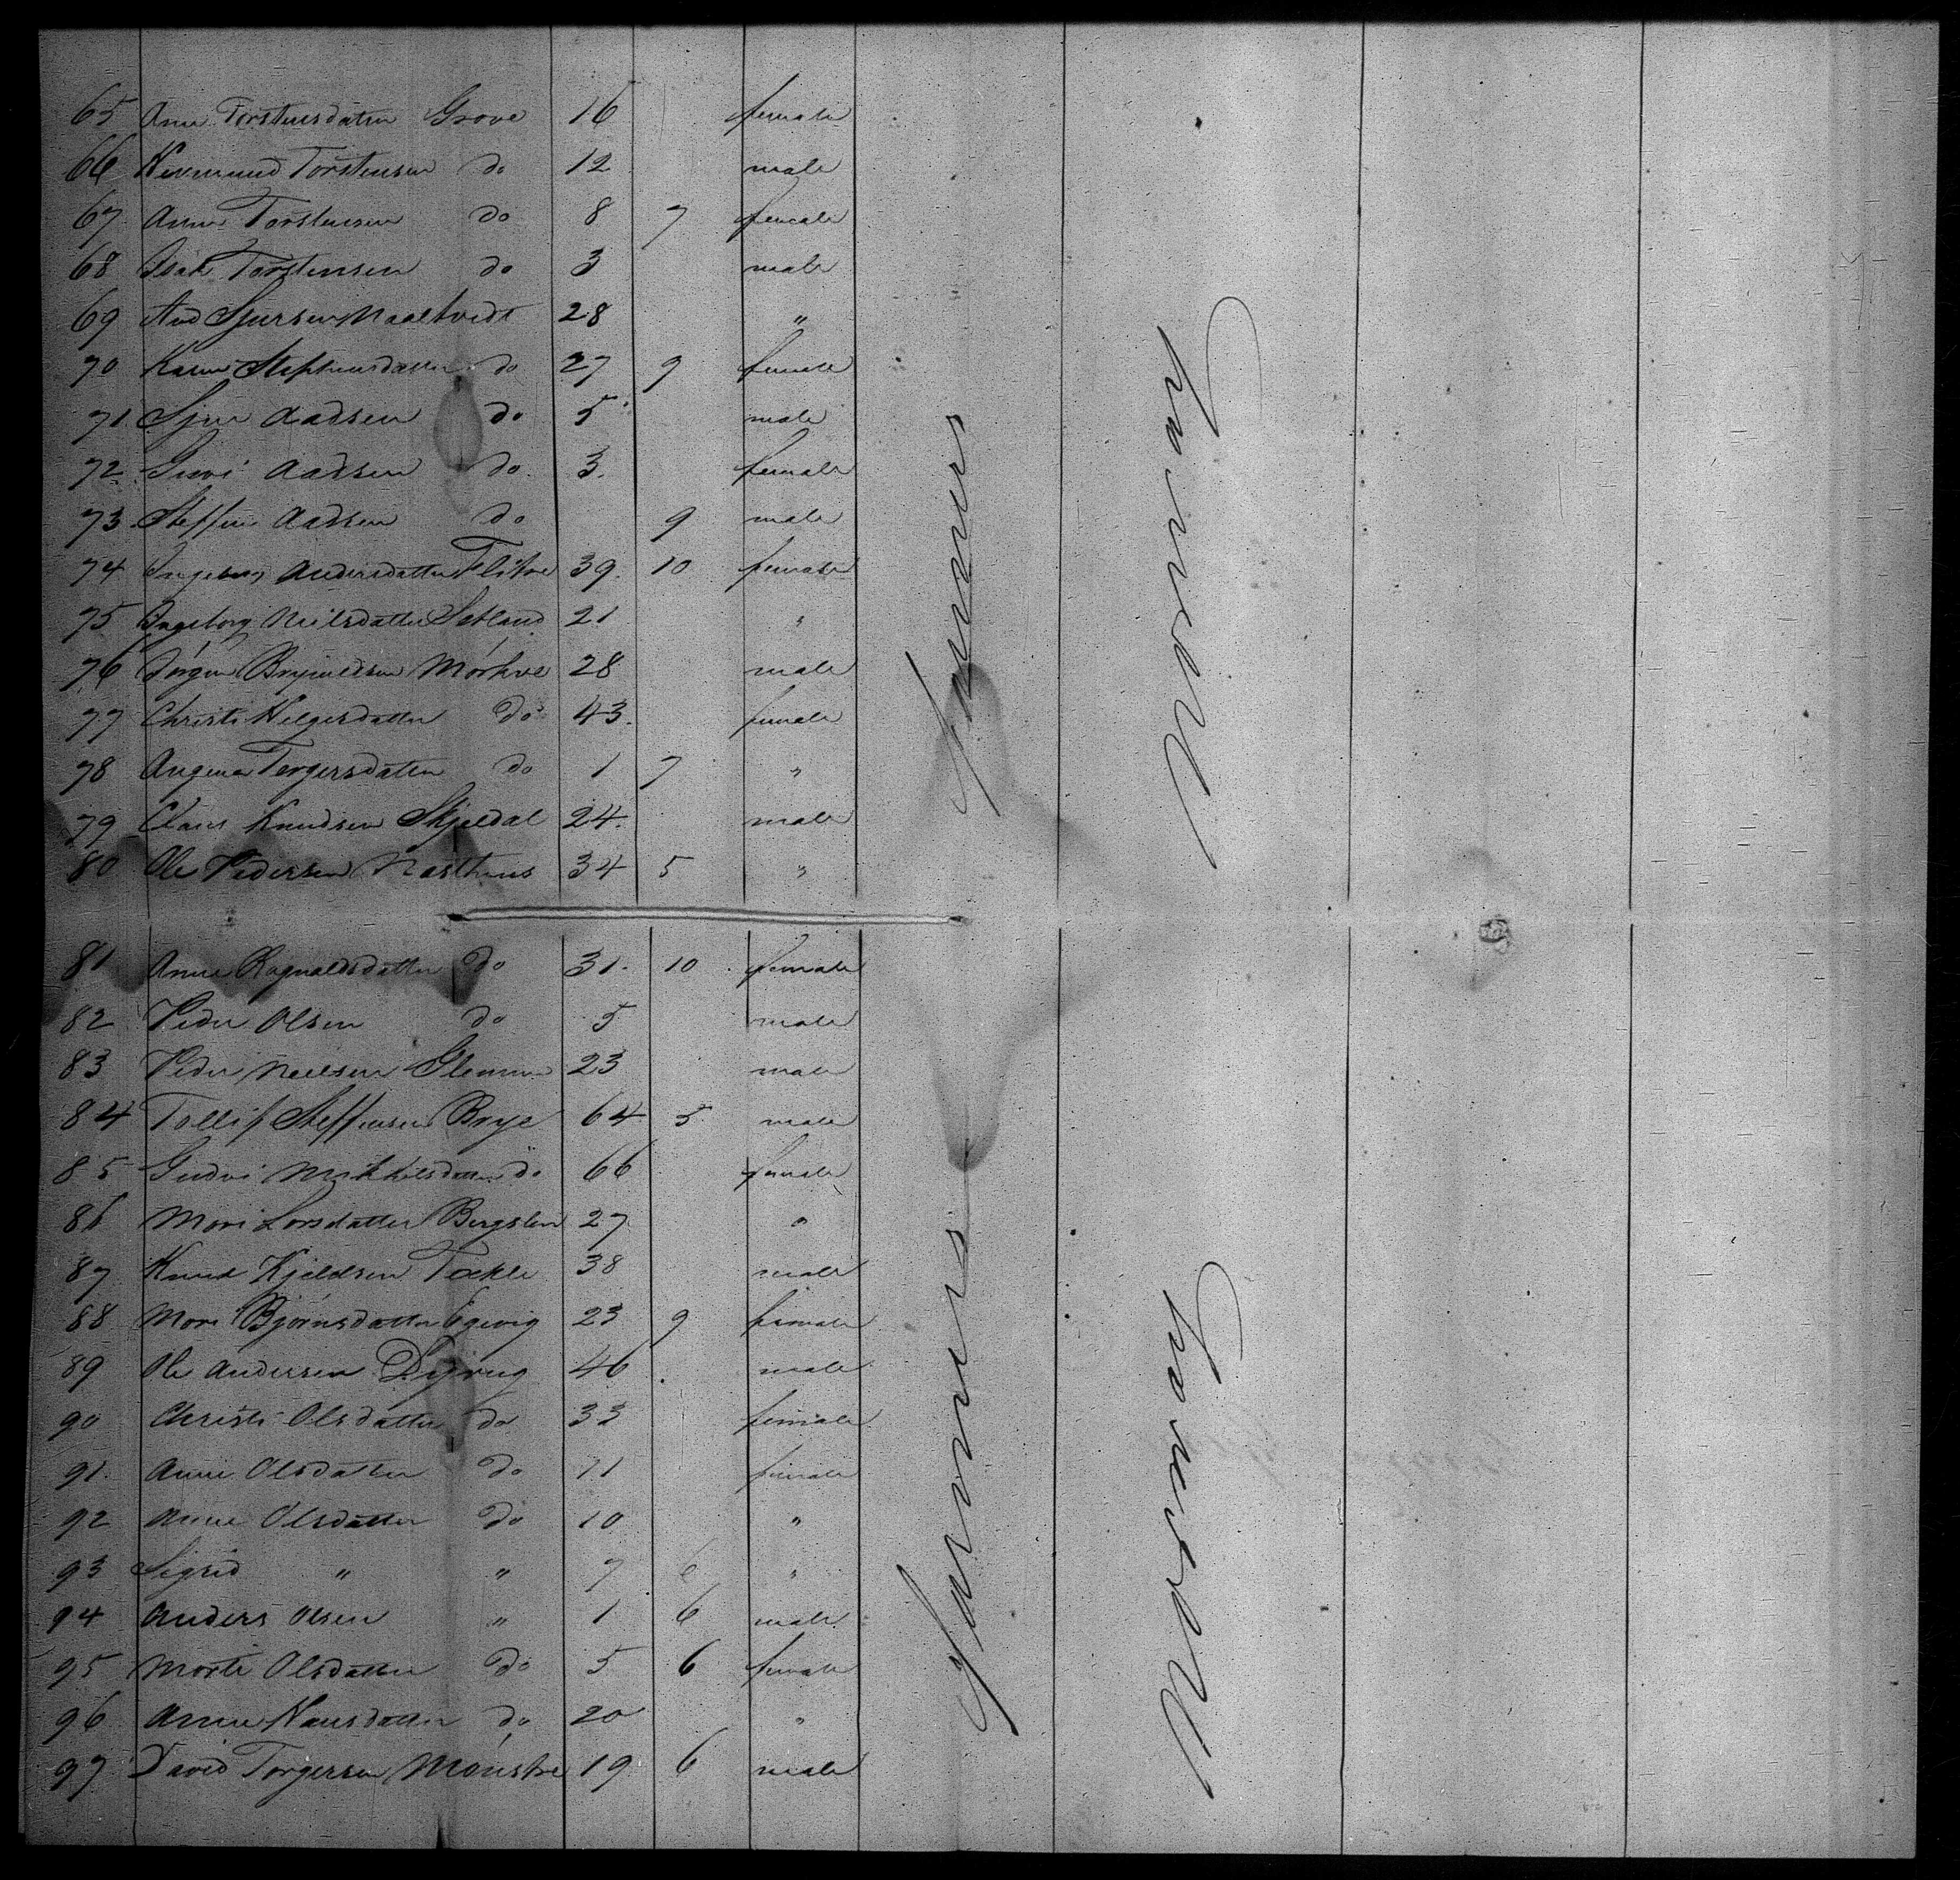 65 Anne Torstensdatter Grove 16 female
66 Hermund Torstensen do 12 male
67 Anne Torstensen do 8 7 female
68 Isak Torstensen do 3 male
69 And Sjursen Maaltvedt 28 "
70 Karen Stephensdatter do 27 9 female
71 Sjur Aadsen do 5 male
72 Guri Aadsen do 3. female
73 Steffen Aadsen do 9 male
74 Ingeborg Andersdatter Flitre 39. 10 female
75 Ingeborg Neilsdatter Setland 21 "
76 Jørgen Brynildsen Mørkve 28 male
77 Christi Helgesdatter do 43. female
78 Angena Torgersdatter do 1 7 "
79 Claus Knudsen Skjeldal 24. male
80 Ole Pedersen Nasthus 34 5 "
81 Anne Ragnaldsdatter do 31. 10 female
82 Peder Olsen do 5 male
83 Peder Neelsen 23 male
84 Tollif Steffensen Brye 64 5 male
85 Gudvi Mikkelsdatter do 66 female
86 Mari Larsdatter 27 "
87 Knud Kjeldsen Takle 38 male
88 Mari Bjørnsdatter 23 9 female
89 Ole Andersen 46 male
90 Christi Olsdatter do 33 female
91. Anne Olsdatter do 11 female
92 Anne Olsdatter do 10 "
93 Sigrid " " 7 6 "
94 Anders Olsen " 1 6 male
95 Marte Olsdatter do 5 6 female
96 Anne Hansdatter do 20 "
97 David Torgersen 19 6 male
Farmers
Norway
Farmers
Norway